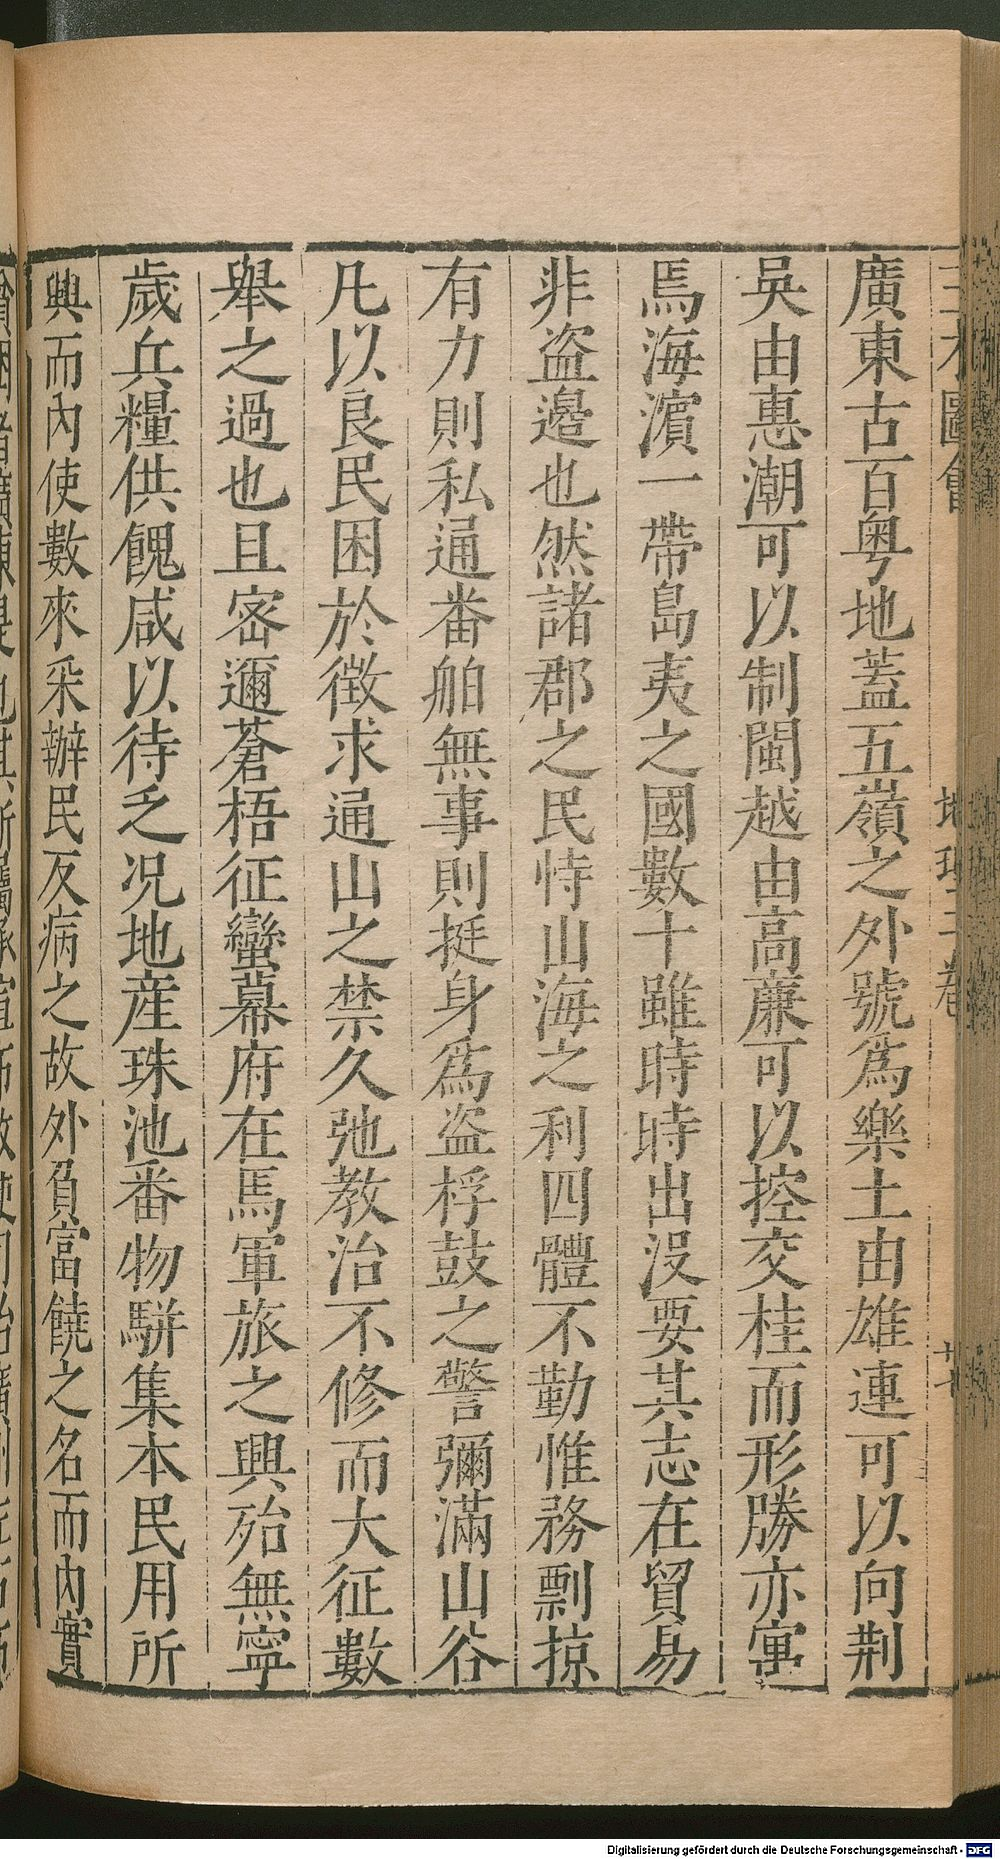 三才圖會 地理三卷 廿七
廣東古百粤地蓋五嶺之外號爲樂土由雄連可以向荆
吳由惠潮可以制閩越由高廉可以控交桂而形勝亦寓
焉海濵一帶島夷之國數十雖時時出沒要其志在貿易
非盗邊也然諸郡之民恃山海之利四體不勤惟務剽掠
有力則私通番舶無事則挺身爲盗桴鼓之警彌滿山谷
凡以良民困於徴求通山之禁久弛教治不修而大征數
舉之過也且密邇蒼梧征蠻幕府在焉軍旅之興殆無寧
歲兵糧供餽咸以待之况地産珠池番物駢集本民用所
興而内使數來采辦民反病之故外負富饒之名而内實
Digitalisierung gefördert durch die Deutsche Forschungsgemeinschaft - DFG